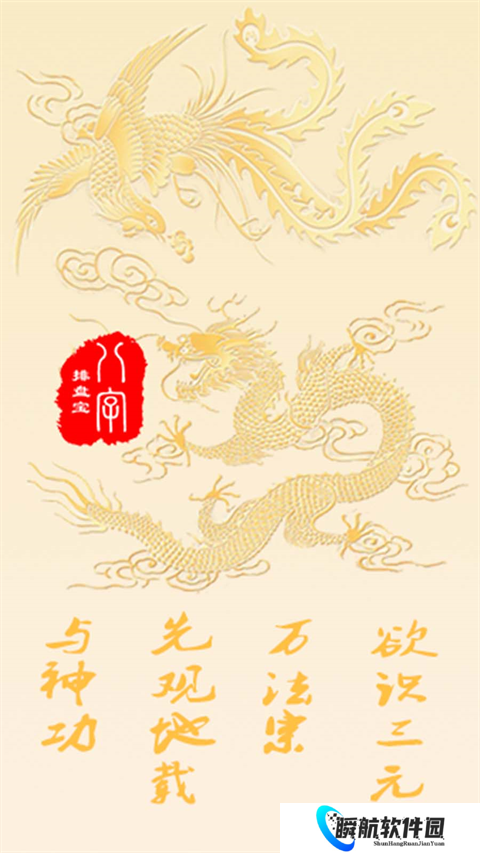 八字
排盘宝
欲识三元
万法宗
先观地载
与神功
瞬航软件园
ShunHangRuanJianYuan